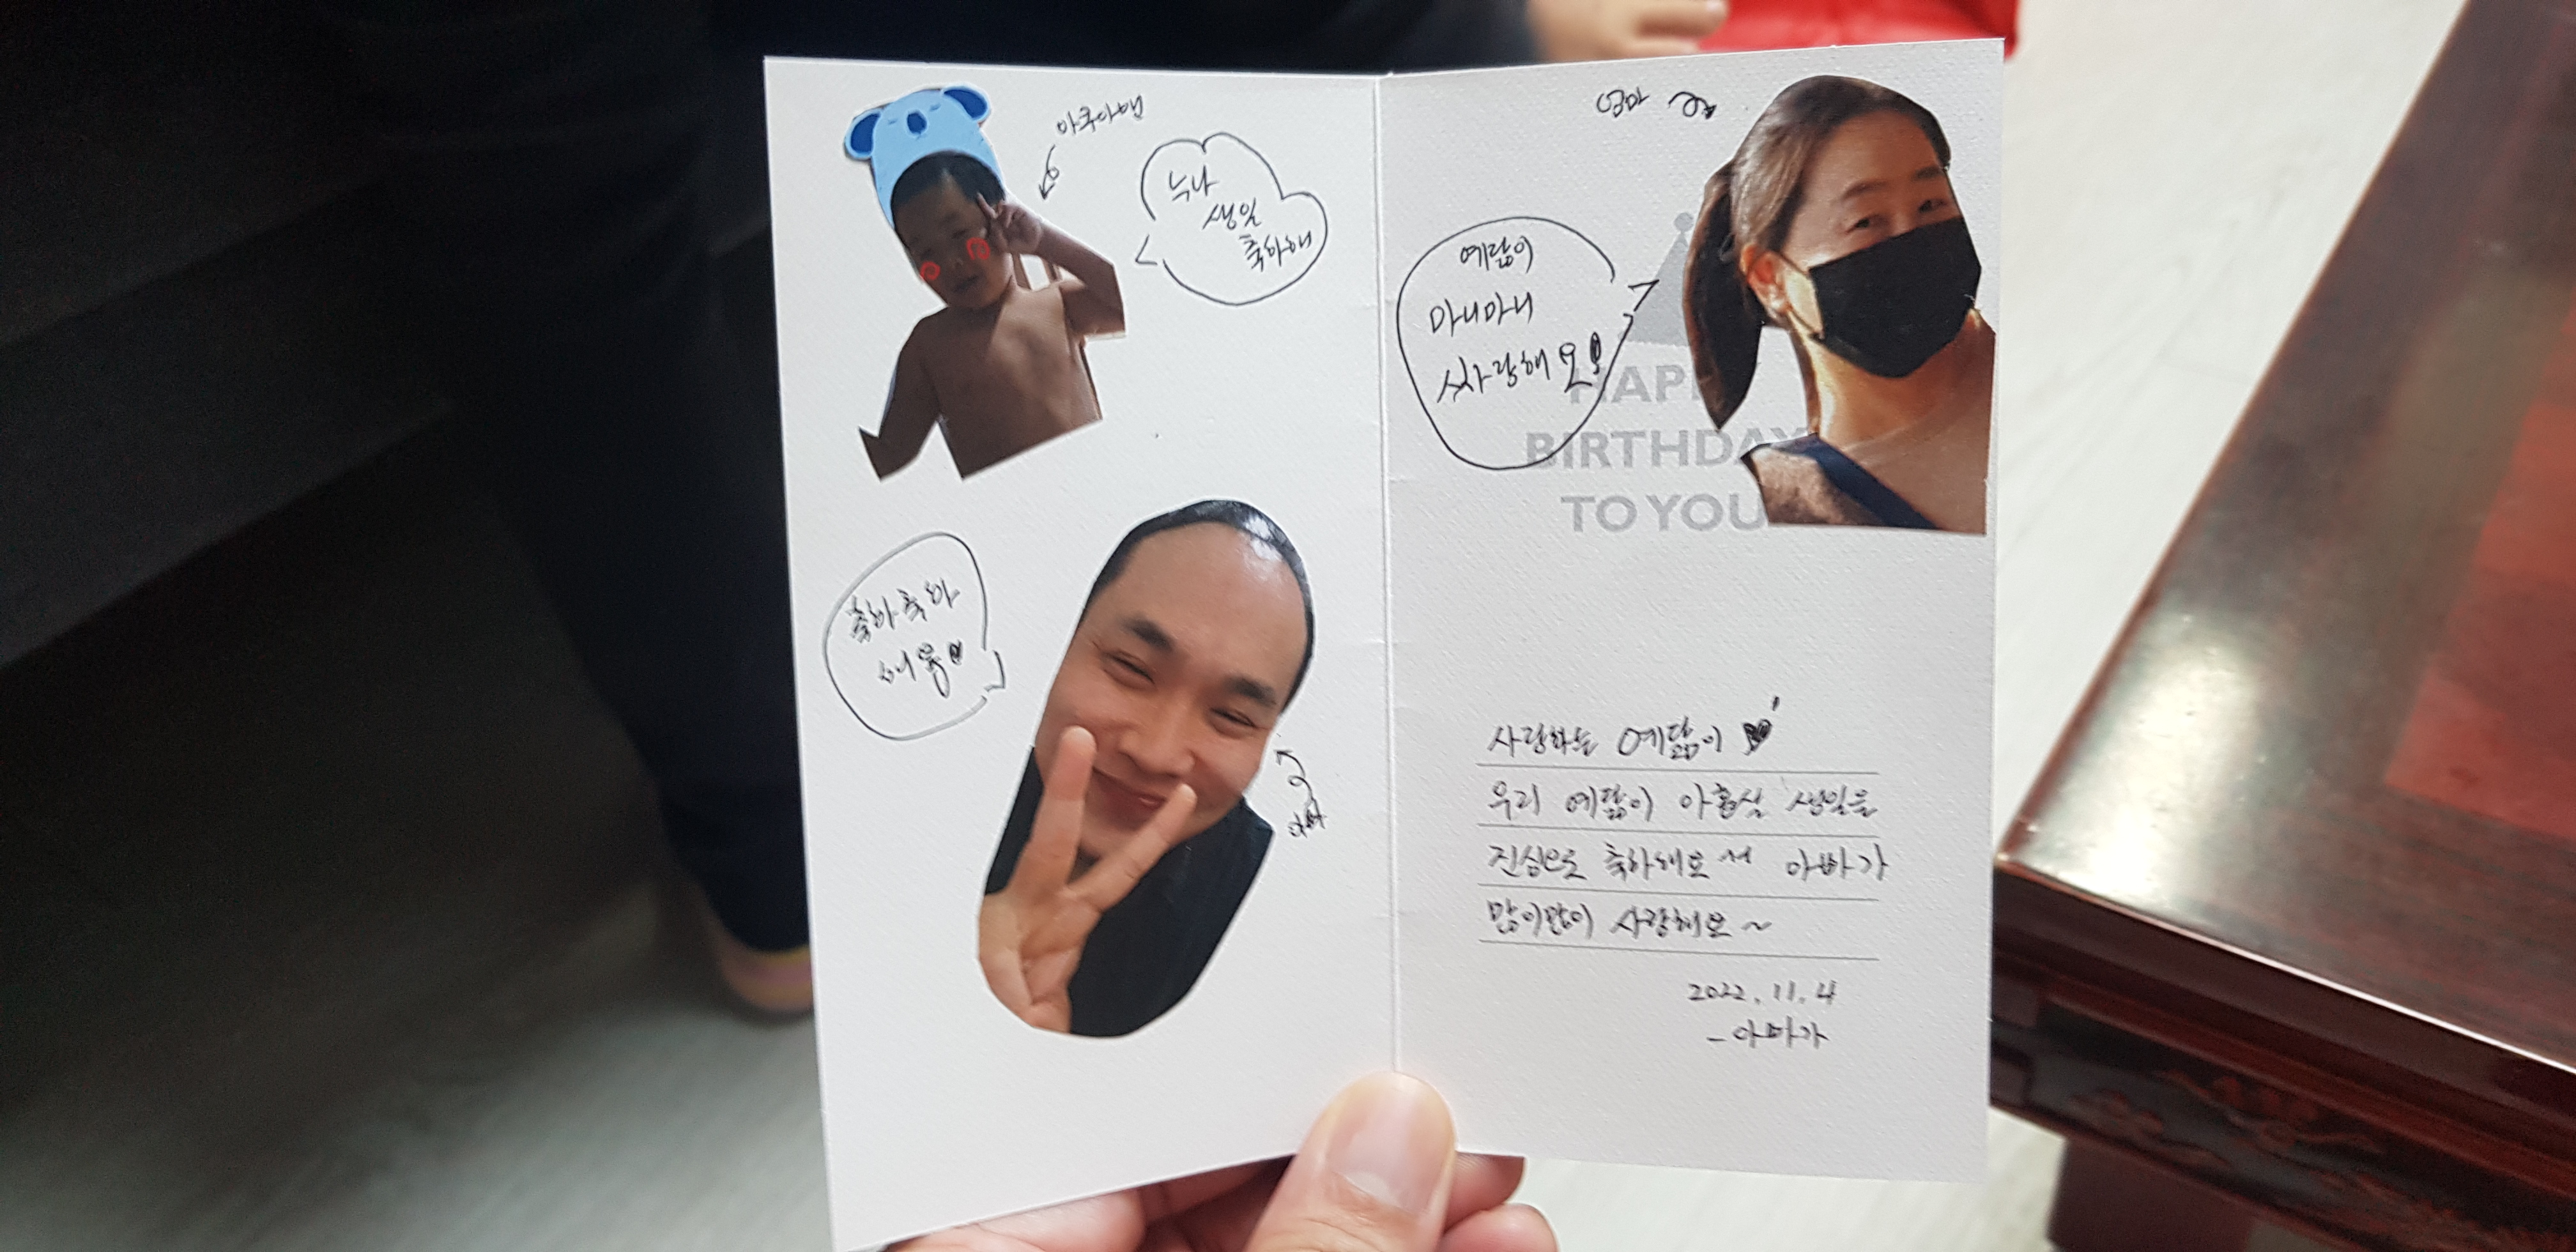 아쿠아맨
누나
생일
축하해
축하축하
해용
아빠
엄마
예닮이
마니마니
싸랑해요!
HAPPY
BIRTHDAY
TO YOU
사랑하는 예닮이 ♥
우리 예닮이 아홉살 생일을
진심으로 축하해요^^ 아빠가
많이많이 사랑해요~
2022. 11. 4
-아빠가